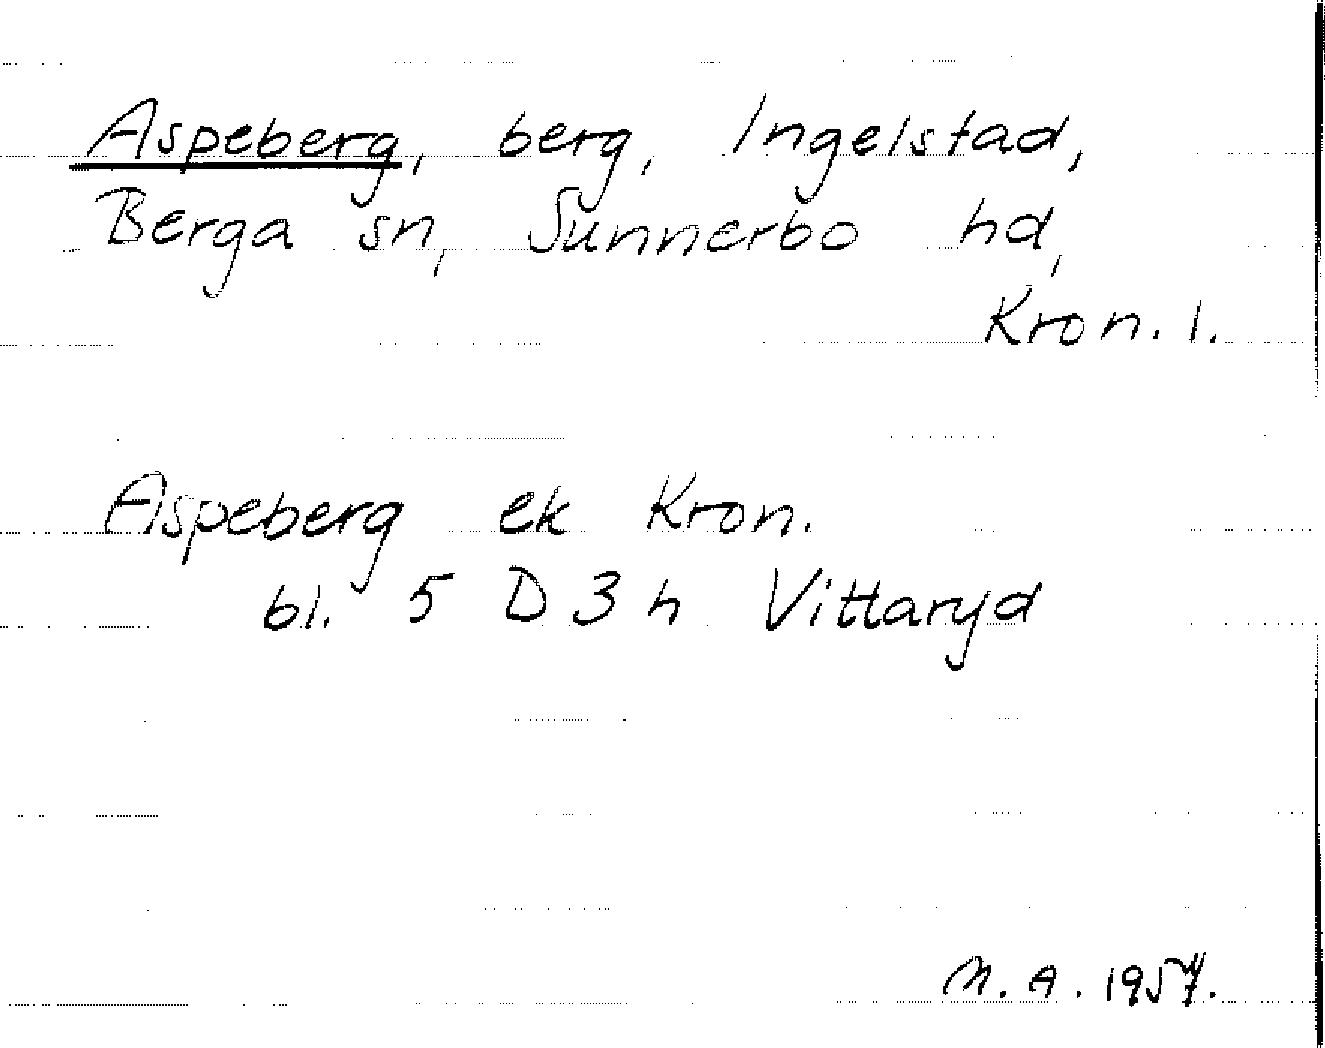 Aspeberg, berg, Ingelstad,
Berga sn, Sunnerbo hd,
Kron. l.
Aspeberg ek Kron.
bl. 5 D 3 h Vittaryd
M. A. 1957.